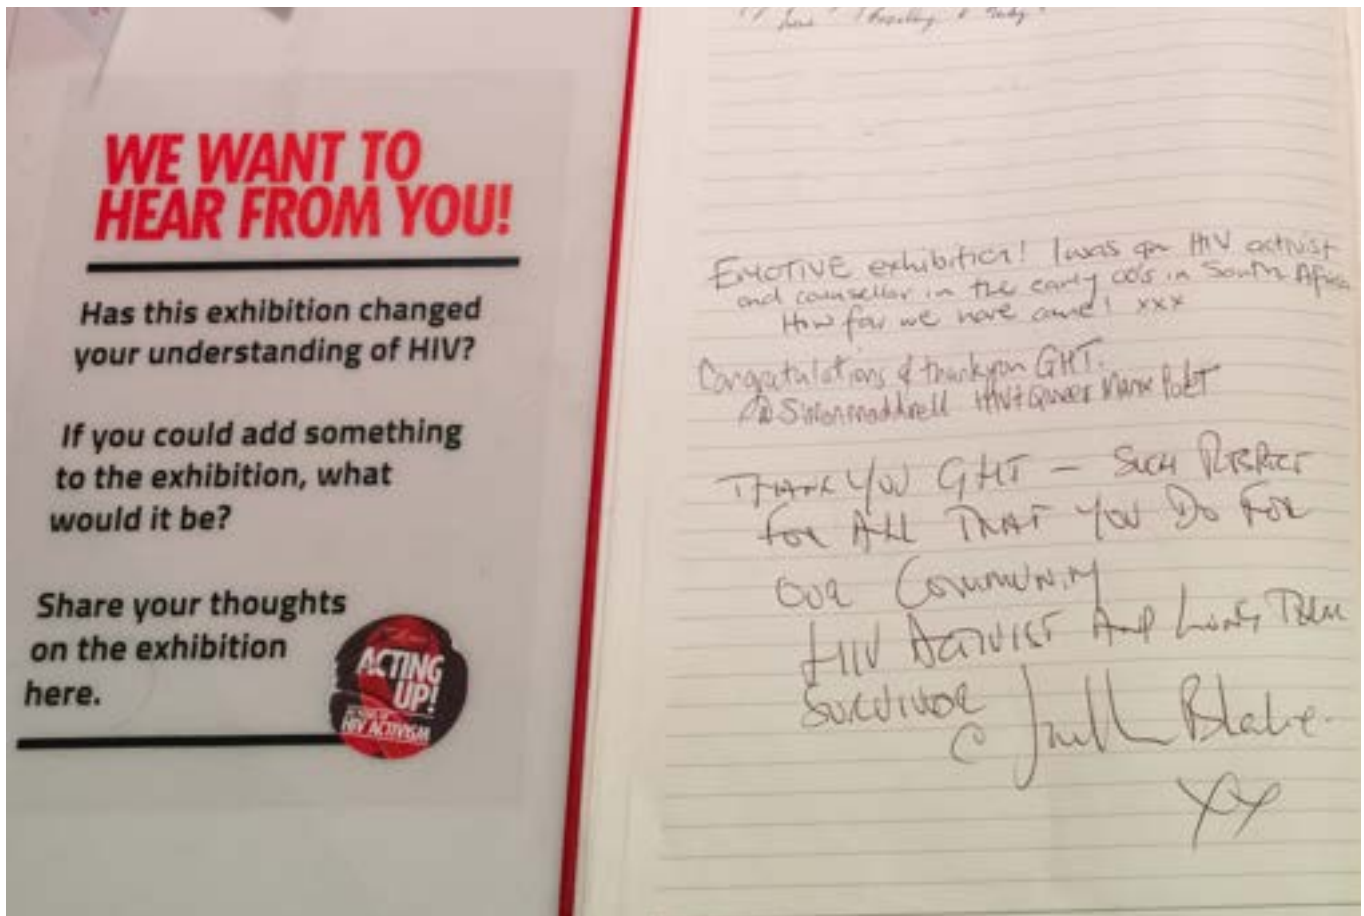 WE WANT TO
HEAR FROM YOU!
Has this exhibition changed
your understanding of HIV?
If you could add something
to the exhibition, what
would it be?
Share your thoughts
on the exhibition
here.
ACTING
UP!
HIV ACTIVISM
EMOTIVE exhibition! I was an HIV activist
and counsellor in the early 00's in South Africa
How far we have come! xxx
Congratulations & thankyou GHT.
@Simonmaddrell HIV+ Queer Manx Poet
THANK YOU GHT – SUCH RESPECT
FOR ALL THAT YOU DO FOR
OUR COMMUNITY
HIV ACTIVIST AND LONG TERM
SURVIVOR
Blake
XX